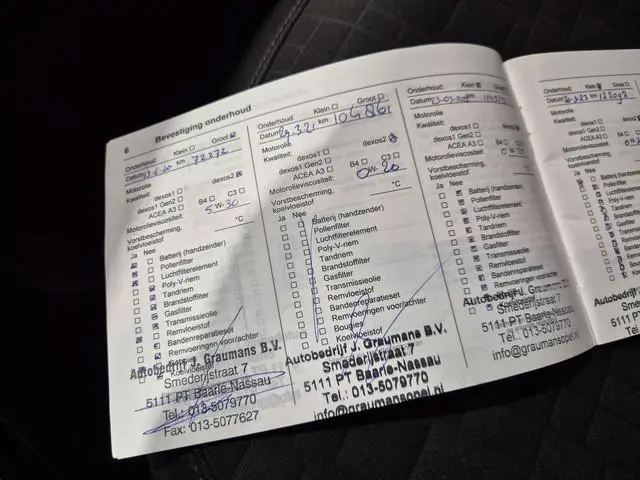 6 Bevestiging onderhoud
Onderhoud: Klein Groot
Datum 13-6-20 km 72372
Motorolie
Kwaliteit: dexos1 dexos2
dexos1 Gen2
ACEA A3 B4 C3
Motorolieviscositeit: 5W-30
Vorstbescherming, koelvloeistof °C
Ja Nee
Batterij (handzender)
Pollenfilter
Luchtfilterelement
Poly-V-riem
Tandriem
Brandstoffilter
Gasfilter
Transmissieolie
Remvloeistof
Bandenreparatieset
Remvoeringen voor/achter
Koelvloeistof
Autobedrijf J. Graumans B.V.
Smederijstraat 7
5111 PT Baarle-Nassau
Tel.: 013-5079770
Fax: 013-5077627
Onderhoud: Klein Groot
Datum 29.3.21 km 104861
Motorolie
Kwaliteit: dexos1 dexos2
dexos1 Gen2
ACEA A3 B4 C3
Motorolieviscositeit: 0W-20
Vorstbescherming, koelvloeistof °C
Ja Nee
Batterij (handzender)
Pollenfilter
Luchtfilterelement
Poly-V-riem
Tandriem
Brandstoffilter
Gasfilter
Transmissieolie
Remvloeistof
Bandenreparatieset
Remvoeringen voor/achter
Bougies
Koelvloeistof
Autobedrijf J. Graumans B.V.
Smederijstraat 7
5111 PT Baarle-Nassau
Tel.: 013-5079770
info@graumansopel.nl
Onderhoud: Klein Groot
Datum km
Motorolie
Kwaliteit: dexos1
dexos1 Gen2
ACEA A3 B4 C3
Motorolieviscositeit:
Vorstbescherming, koelvloeistof °C
Ja Nee
Batterij (handzender)
Pollenfilter
Luchtfilterelement
Poly-V-riem
Tandriem
Brandstoffilter
Gasfilter
Transmissieolie
Remvloeistof
Bandenreparatieset
Remvoeringen voor/achter
Autobedrijf J. Graumans
Smederijstraat 7
5111 PT Baarle-Nassau
Tel.: 013-5079770
info@graumansopel.nl
Onderhoud: Klein
Datum km
Motorolie
Kwaliteit:
Motorolieviscositeit:
Vorstbescherming, koelvloeistof
Ja Nee
Autobedrijf J.
Smede
5111 PT
Tel.:
info@